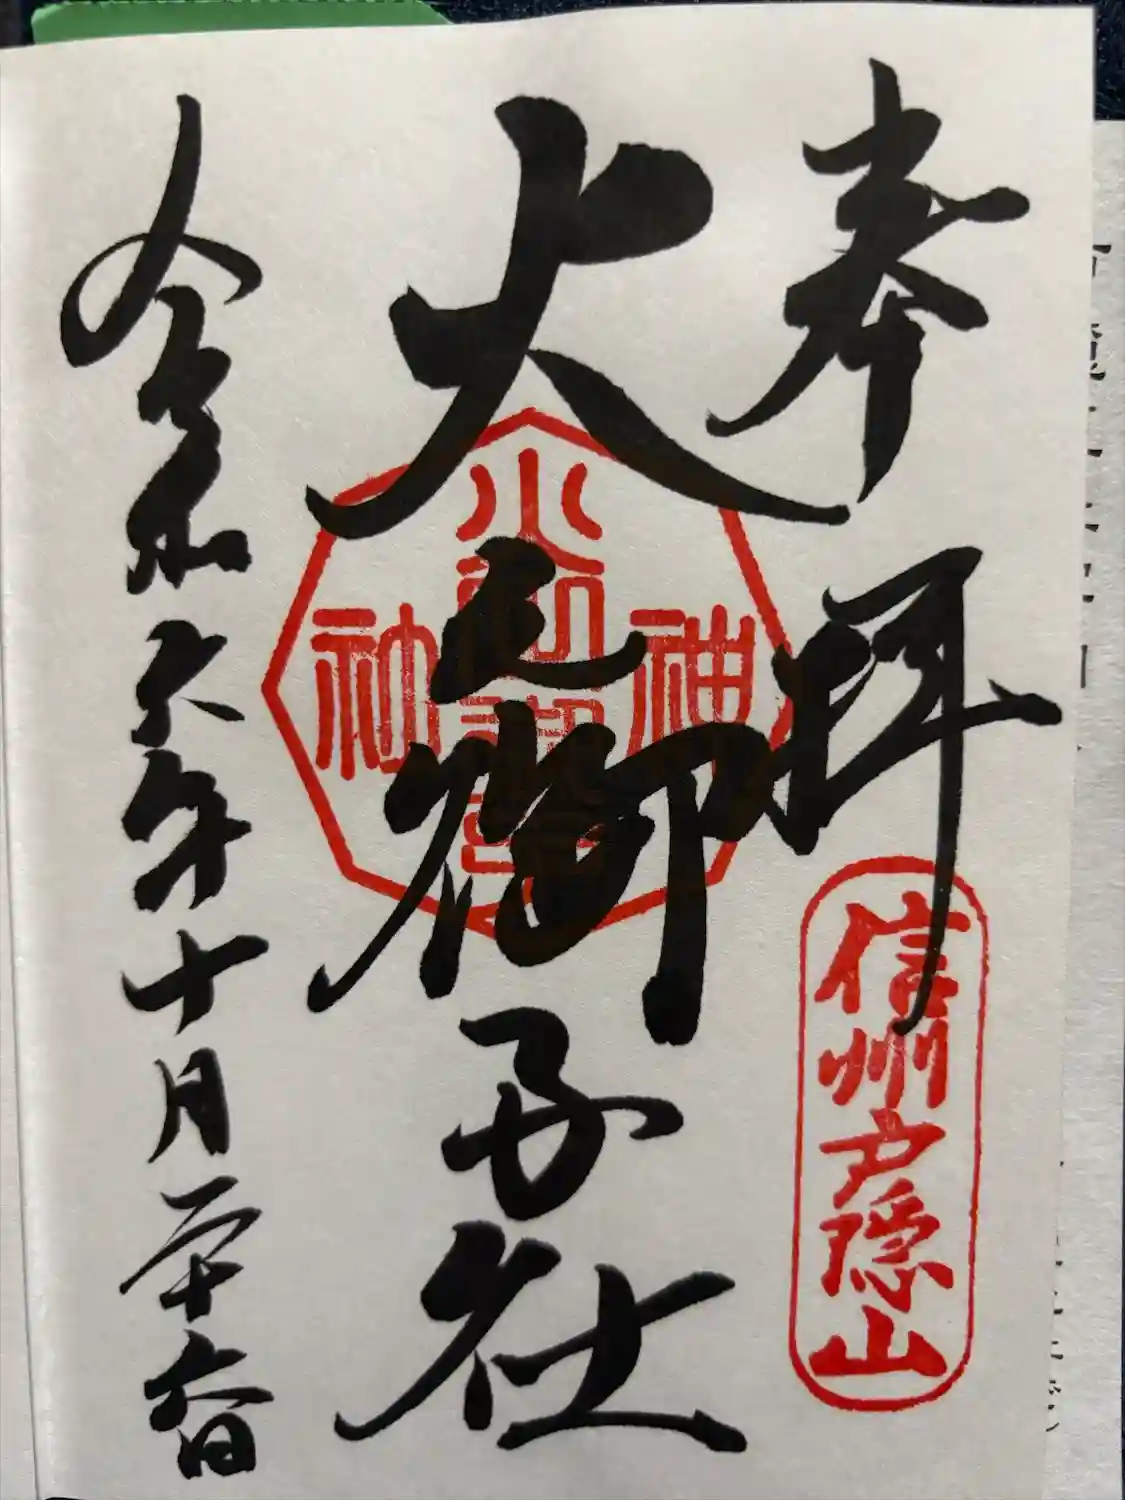 奉拝
信州戸隠山
火之御子社
令和六年十月二十六日